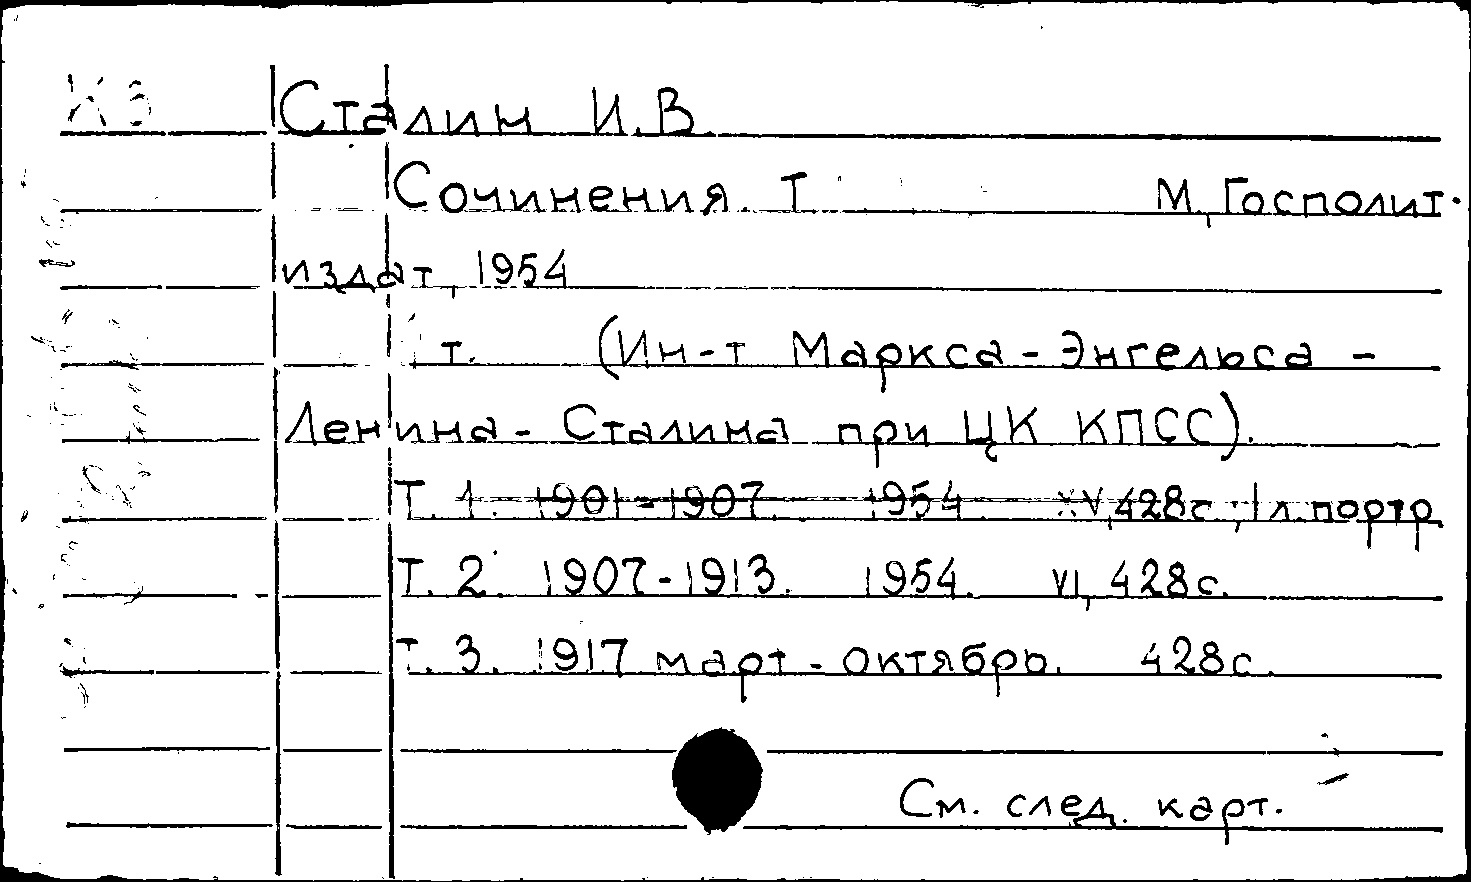 К3 Сталин И.В.
Сочинения. Т М, Госполит-
издат, 1954
т. (Ин-т Маркса-Энгельса -
Ленина- Сталина при ЦК КПСС).
Т. 1. 1901-1907. 1954. XV, 428с., 1 л. портр.
Т. 2. 1907-1913. 1954. VI, 428с.
Т. 3. 1917 март - октябрь. 428с.
См. след. карт.